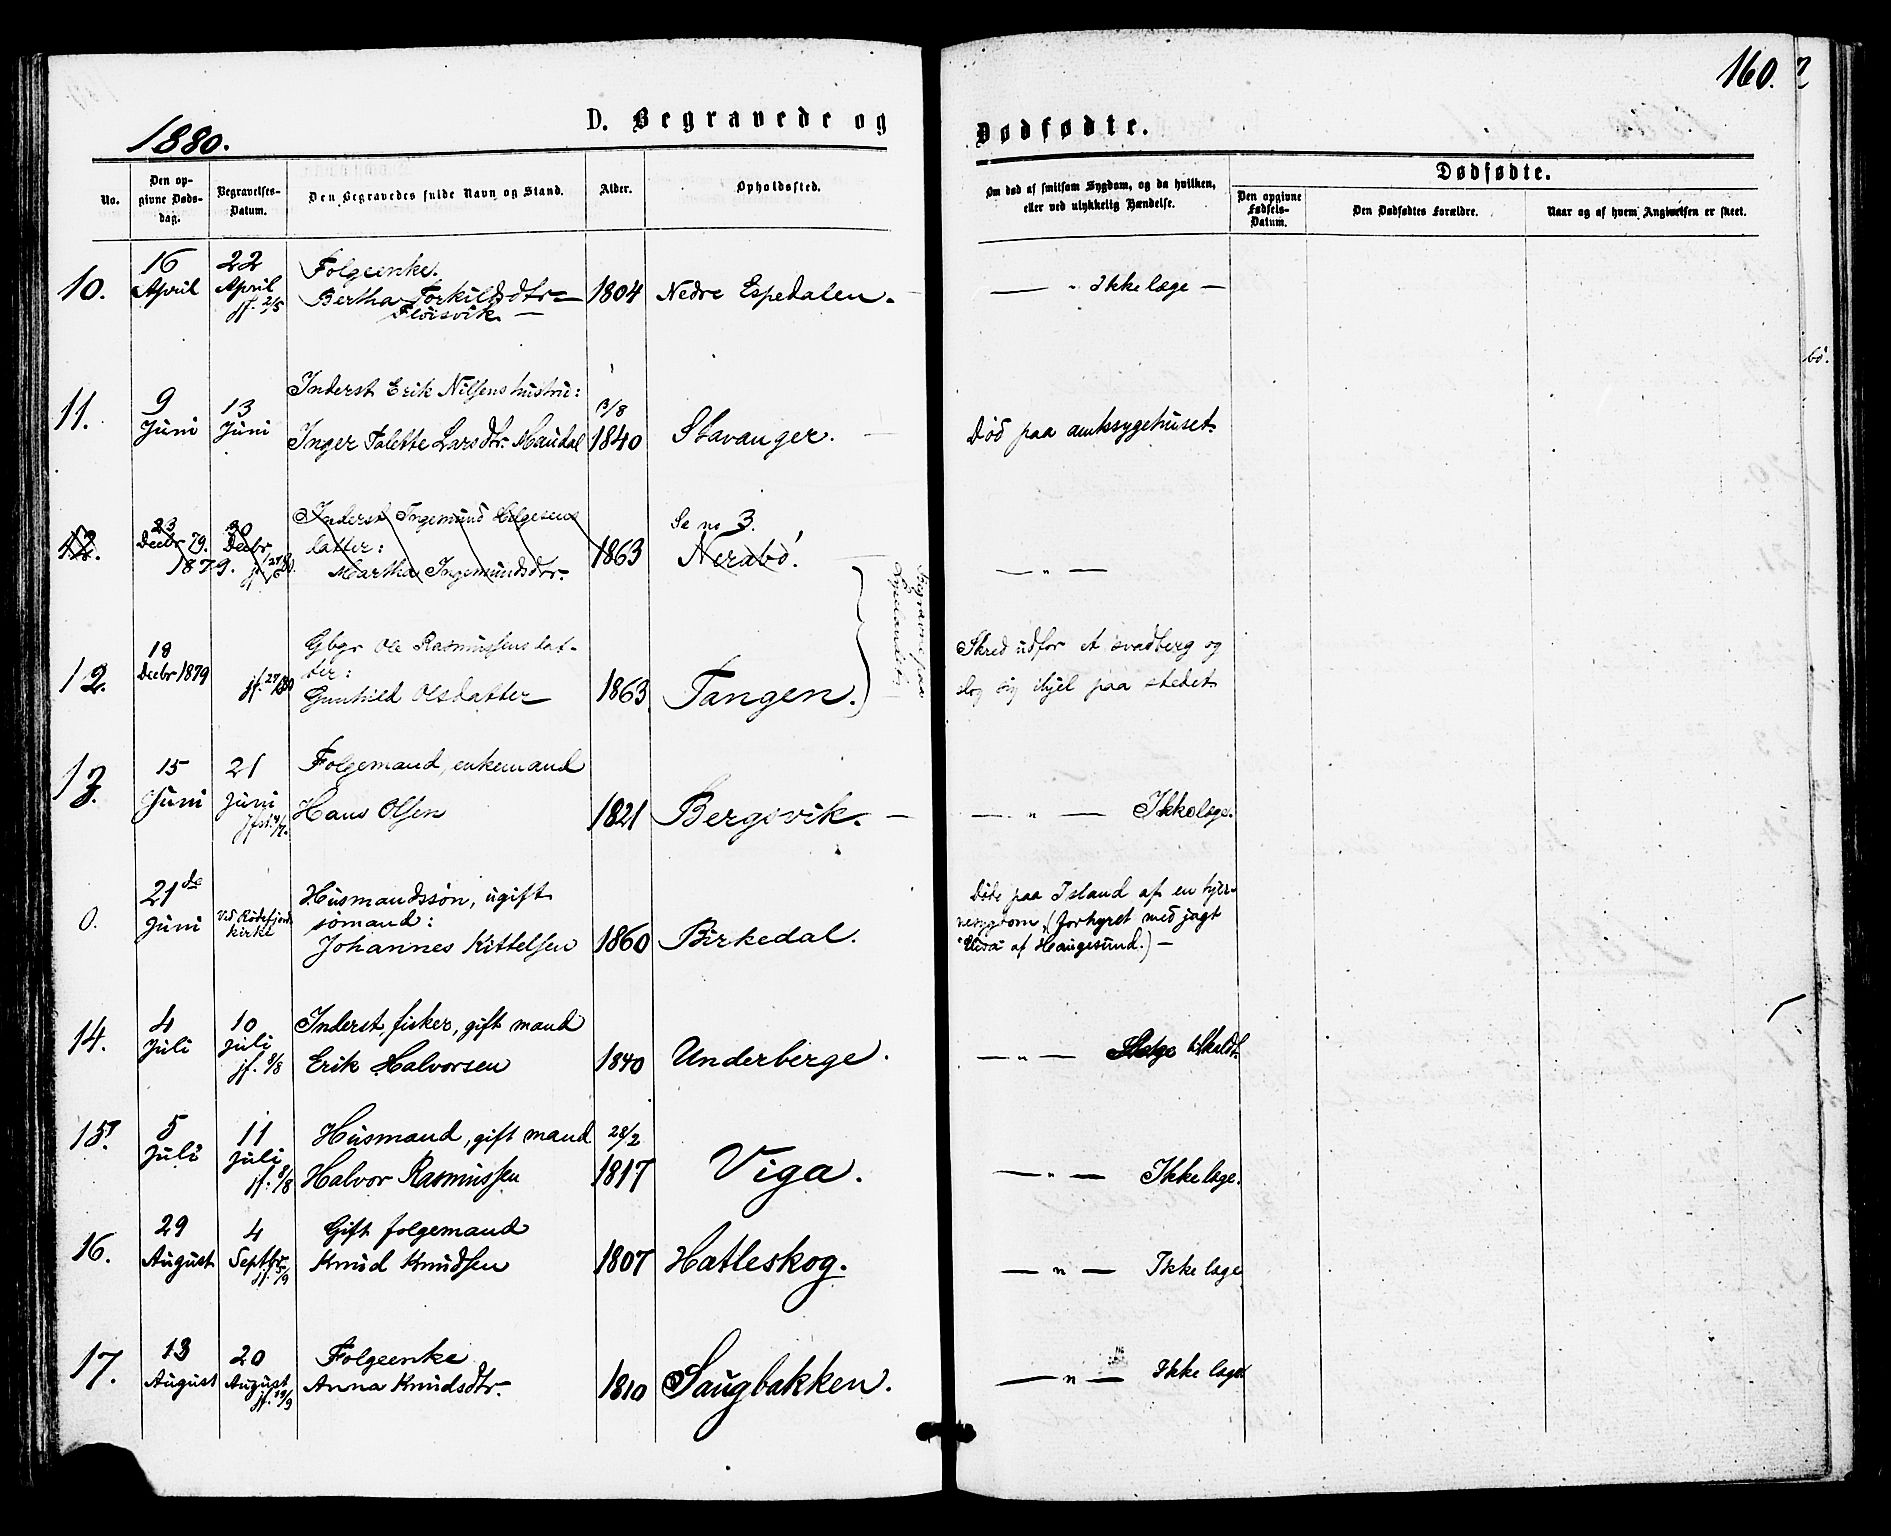 160.
1880.
D. Begravede og Dødfødte.
No.
Den opgivne Dødsdag.
Begravelses-Datum.
Den Begravedes fulde Navn og Stand.
Alder.
Opholdssted.
Om død af smitsom Sygdom, og da hvilken, eller ved ulykkelig Hændelse.
Dødfødte.
Den opgivne Fødsels-Datum.
Den Dødfødtes Forældre.
Naar og af hvem Angivelsen er skeet.
10.
16 April
22 April
jf. 2/5
Folgeenke.
Bertha Torkildsdtr
Fløisvik
1804
Nedre Espedalen.
— " Ikke læge —
11.
9 Juni
13 Juni
Inderst Erik Nilsens hustru:
Inger Talette Larsdtr. Maudal
13/8
1840
Stavanger.
Død paa amtssygehuset.
12.
23 Decbr 79.
1879.
30 Decbr
Inderst Ingemund Helgesens
datter:
Martha Ingemundsdtr.
1863
Se no 3.
Nerabø.
— " —
12.
18
Decbr 1879
Gbgr Ole Rasmussens dat-
ter:
Gunhild Olsdatter
1863
Tangen.
Skred udfor et svadberg og
slog sig ihjel paa stedet
13.
15 Juni
21 Juni
Folgemand, enkemand
Hans Olsen
1821
Bergsvik.
— " — Ikke læge.
0.
21de Juni
kirke
Husmandssøn, ugift
sømand:
Johannes Kittelsen
1860
Birkedal.
Døde paa Island af en hjer-
nesygdom, (forhyret med jagt
af Haugesund.) —
14.
4 Juli
10 juli
jf. 8/8
Inderst, fisker, gift mand
Erik Halvorsen
1840
Underberge.
— " —
15.
5 Juli
11 juli
jf. 8/8
Husmand, gift mand
Halvor Rasmussen
28/2
1817
Viga.
— " — Ikke læge.
16.
29 August
4 Septbr
jf. 5/9
Gift folgemand
Knud Knudsen
1807
Hatleskog.
— " — Ikke læge
17.
13 August
20 August
jf. 19/9
Folgeenke
Anna Knudsdtr.
1810
Saugbakken.
— " — Ikke læge